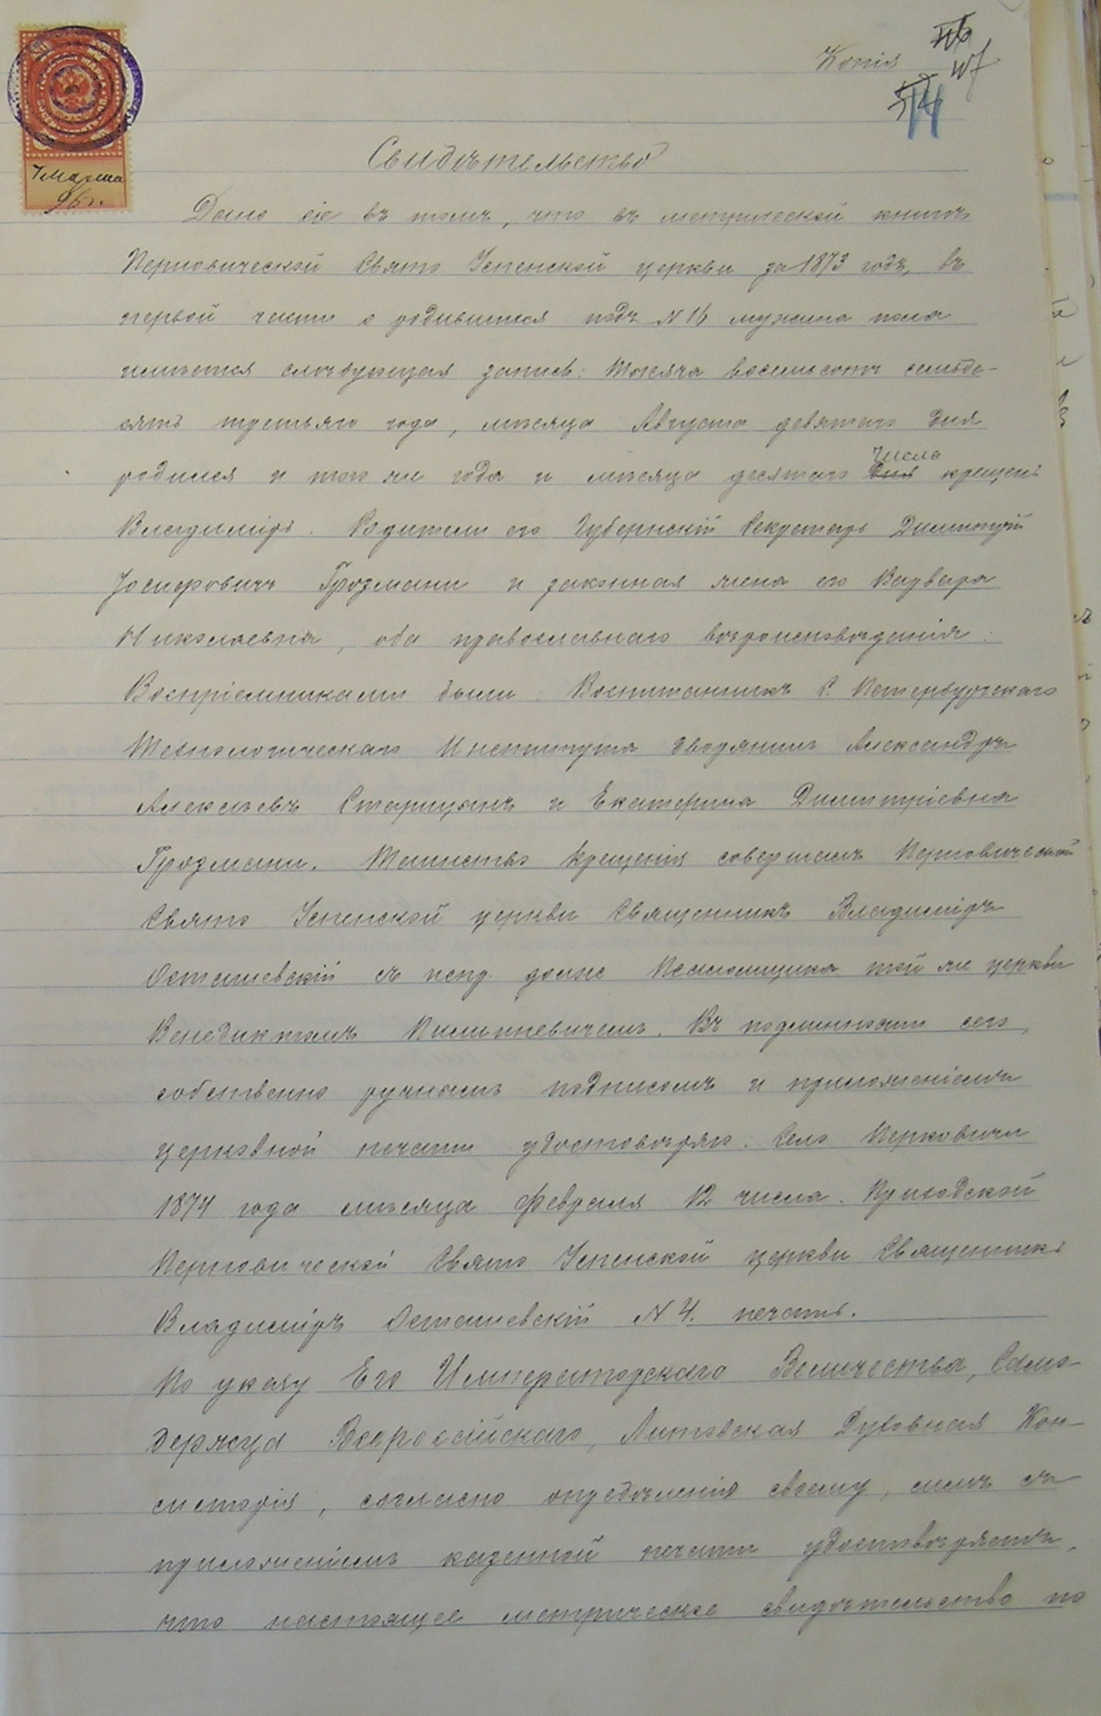 Копія
Свидѣтельство
7 Марта
96 г.
Дано сіе въ томъ, что въ метрической книгѣ
Перковической Свято Успенской церкви за 1873 годъ, въ
первой части о родившихся подъ N 16 мужска пола
имѣется слѣдующая запись: Тысяча восемьсотъ семьде-
сятъ третьяго года, мѣсяца Августа девятаго дня
родился и того же года и мѣсяца десятаго числа крещенъ
Владиміръ. Родители его Губернскій Секретарь Димитрій
Іосифовичъ Грозмани и законная жена его Варвара
Николаевна, оба православнаго вѣроисповѣданія.
Воспріемниками были: Воспитанникъ С. Петербургскаго
Технологическаго Института дворянинъ Александръ
Алексѣевъ Старицынъ и Екатерина Димитріевна
Грозмани. Таинство крещенія совершалъ Перковической
Свято Успенской церкви Священникъ Владиміръ
Осташевскій съ испр. долж. Псаломщика той же церкви
Венедиктомъ Пилинкевичемъ. Въ подлинности сего,
собственно ручнымъ подписомъ и приложеніемъ
церковной печати удостовѣряю. Село Перковичи
1874 года мѣсяца февраля 12 числа. Приходской
Перковической Свято Успенской церкви Священникъ
Владиміръ Осташевскій N 4. печать.
По указу Его Императорскаго Величества, Само-
держца Всероссійскаго, Литовская Духовная Кон-
систорія, согласно опредѣленія своему, симъ съ
приложеніемъ казенной печати удостовѣряетъ,
что настоящее метрическое свидѣтельство по